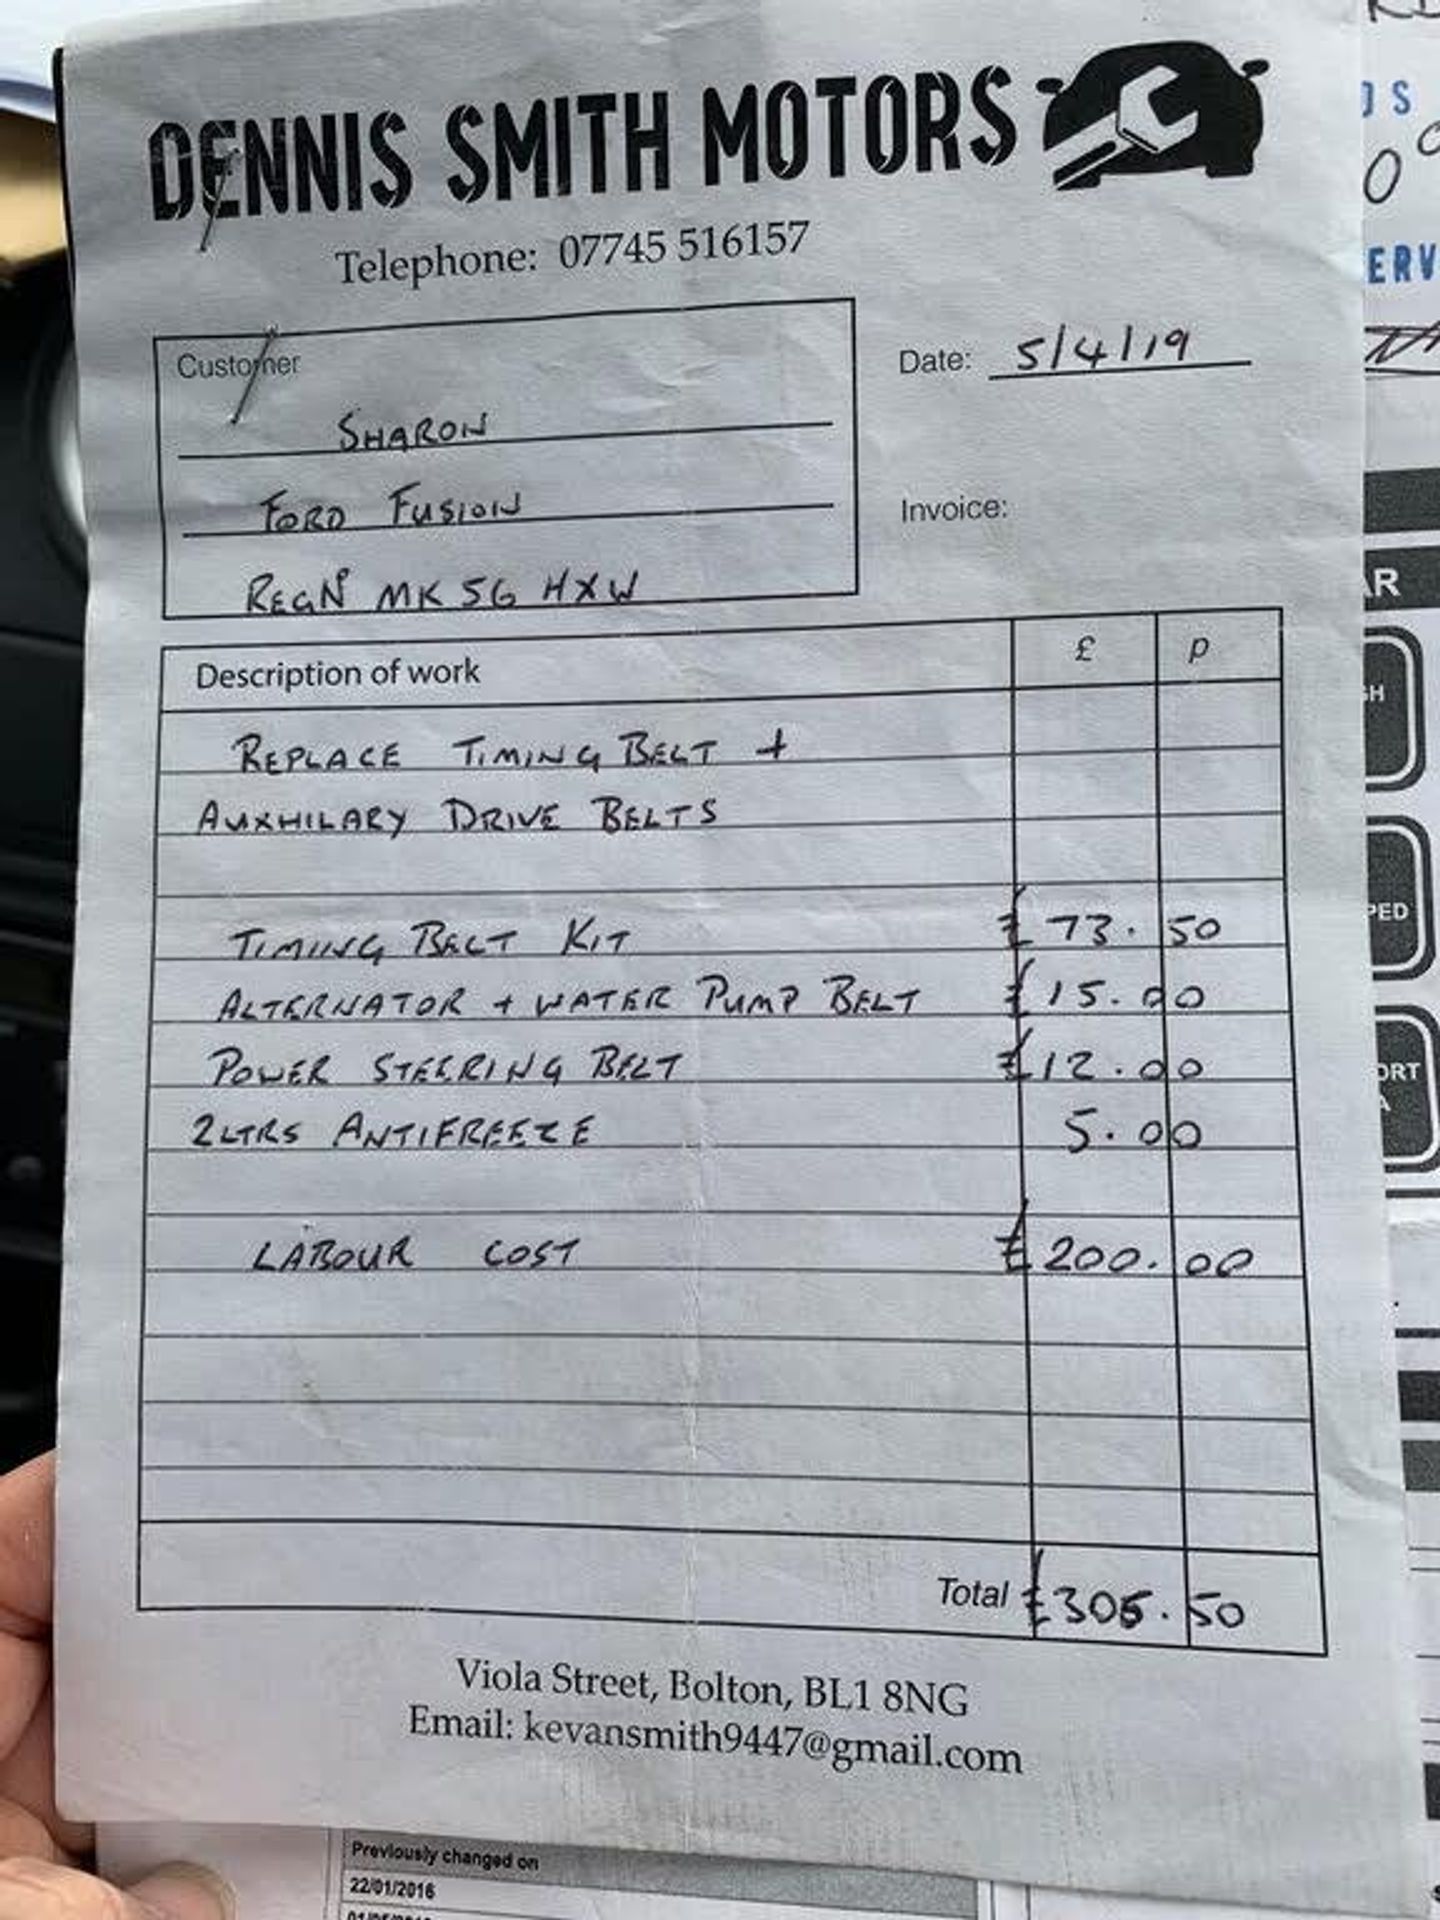 DENNIS SMITH MOTORS
Telephone: 07745 516157
Customer
SHARON
FORD FUSION
REGNº MK56 HXW
Date: 5/4/19
Invoice:
Description of work £ p
REPLACE TIMING BELT +
AUXHILARY DRIVE BELTS
TIMING BELT KIT £73.50
ALTERNATOR + WATER PUMP BELT £15.00
POWER STEERING BELT £12.00
2LTRS ANTIFREEZE 5.00
LABOUR COST £200.00
Total £305.50
Viola Street, Bolton, BL1 8NG
Email: kevansmith9447@gmail.com
Previously changed on
22/01/2016